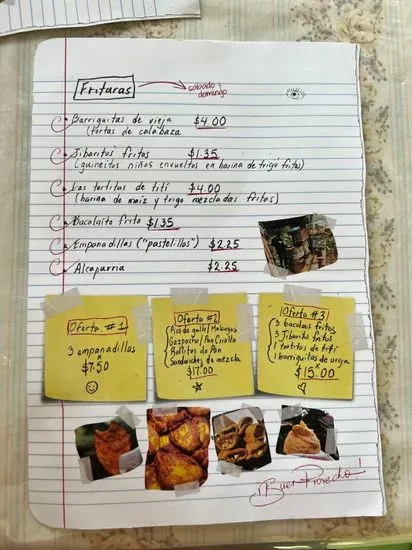 Frituras
sábado y
domingo
Barriguitas de vieja $4.00
(tortas de calabaza
Jibaritos fritos $1.35
(guineitos niños envueltos en harina de trigo fritos)
Las tortitas de tití $4.00
(harina de maíz y trigo mezcladas fritas)
Bacalaito frito $1.35
Empanadillas ("pastelillos") $2.25
Alcapurria $2.25
Oferta #1
3 empanadillas
x
$7.50
Oferta #2
Pico de gallo/Mabegas
Gazpacho/Pan Criollo
Rollitos de Pan
Sandwiches de mezcla
$17.00
Oferta #3
3 bacalaos fritos
3 Jibaritos fritos
1 tortitas de tití
1 barriguitas de vieja
x
$15.00
¡Buen Provecho!